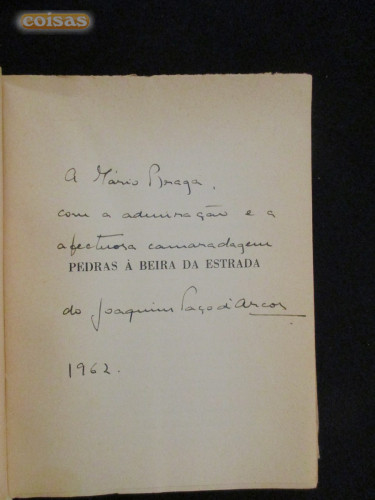 coisas
A Mário Braga,
com a admiração e a
afectuosa camaradagem
PEDRAS À BEIRA DA ESTRADA
do Joaquim Paço d'Arcos
1962.